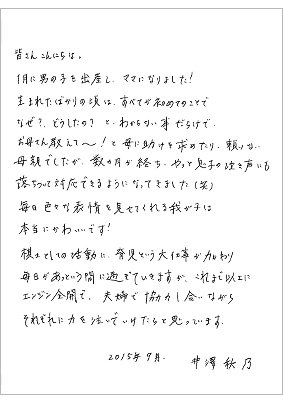 皆さんこんにちは。
1月に男の子を出産し、ママになりました!
生まれたばかりの頃は、すべてが初めてのことで
なぜ?、どうしたの? と、わからない事だらけで、
お母さん教えて〜!と 母に助けを求めたり、頼りない
母親でしたが、数ヵ月が経ち、やっと息子の泣き声にも
落ちついて対応できるようになってきました(笑)
毎日色々な表情を見せてくれる我が子は
本当にかわいいです!
棋士としての活動に、育児という大仕事が加わり
毎日があっという間に過ぎていきますが、これまで以上に
エンジン全開で、夫婦で協力し合いながら
それぞれに力を注いでいけたらと思っています。
2015年9月. 井澤秋乃